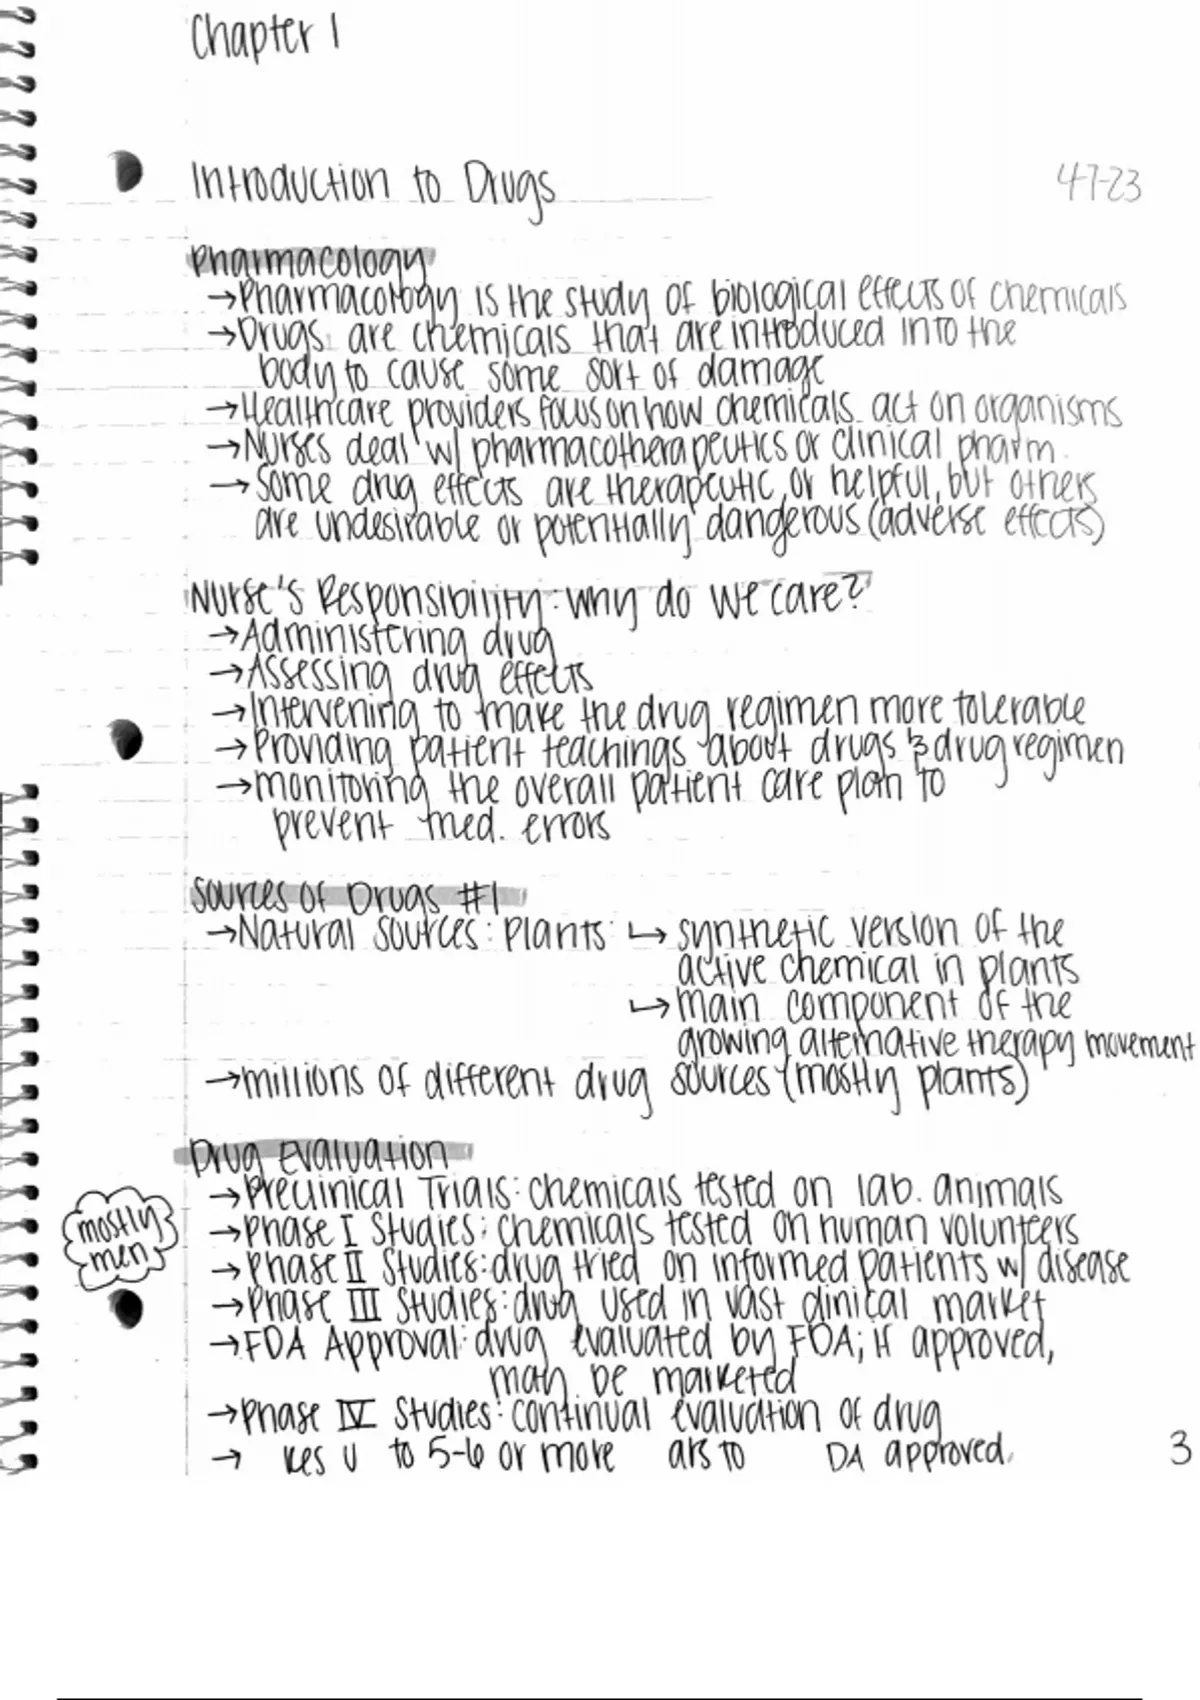 Chapter 1
Introduction to Drugs 4-7-23
Pharmacology
→Pharmacology is the study of biological effects of chemicals
→Drugs are chemicals that are introduced into the
body to cause some sort of damage
→Healthcare providers focus on how chemicals act on organisms
→Nurses deal w/ pharmacotherapeutics or clinical pharm.
→Some drug effects are therapeutic, or helpful, but others
are undesirable or potentially dangerous (adverse effects)
Nurse's Responsibility: why do we care?
→Administering drug
→Assessing drug effects
→Intervening to make the drug regimen more tolerable
→Providing patient teachings about drugs & drug regimen
→monitoring the overall patient care plan to
prevent med. errors
Sources of Drugs #1
→Natural sources: plants ↳ synthetic version of the
active chemical in plants
↳ main component of the
growing alternative therapy movement
→millions of different drug sources (mostly plants)
Drug Evaluation
→Preclinical Trials: chemicals tested on lab. animals
mostly
men
→Phase I Studies: chemicals tested on human volunteers
→Phase II Studies: drug tried on informed patients w/ disease
→Phase III Studies: drug used in vast clinical market
→FDA Approval: drug evaluated by FDA; if approved,
may be marketed
→Phase IV Studies: continual evaluation of drug
→ kes u to 5-6 or more ars to DA approved.
3